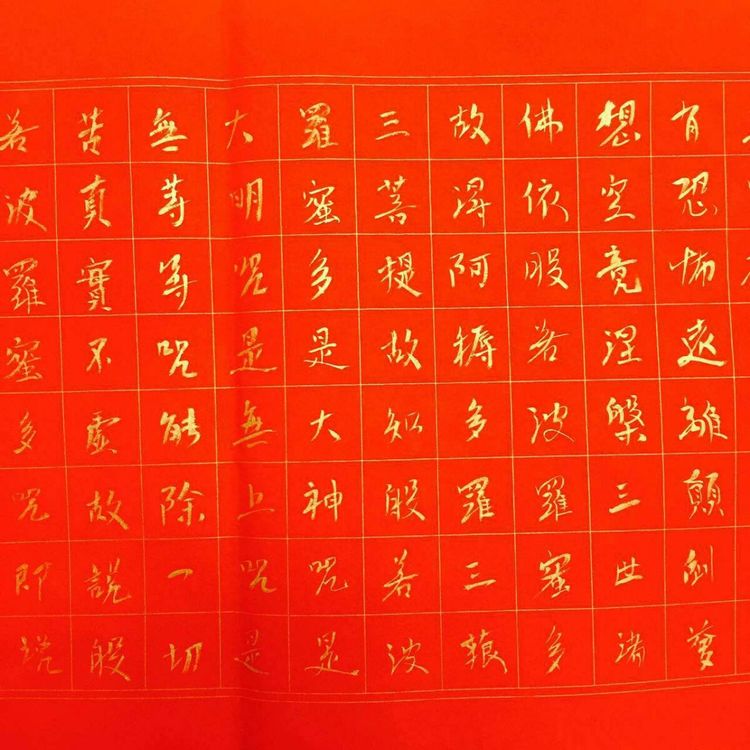 有恐怖遠離顛倒夢
想究竟涅槃三世諸
佛依般若波羅蜜多
故得阿耨多羅三藐
三菩提故知般若波
羅蜜多是大神咒是
大明咒是無上咒是
無等等咒能除一切
苦真實不虛故說般
若波羅蜜多咒即說